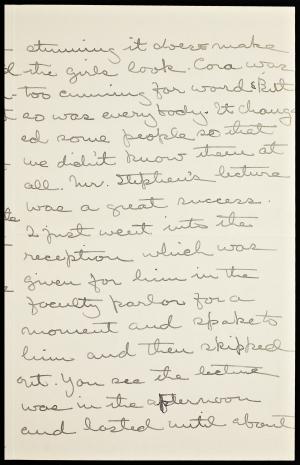 stunning it does make
the girls look. Cora was
too cunning for words & But
so was everybody. It chang
ed some people so that
we didn't know them at
all. Mr. Stephen's lecture
was a great success.
I just went into the
reception which was
given for him in the
faculty parlor for a
moment and spoke to
him and then skipped
out. You see the lecture
was in the afternoon
and lasted until about